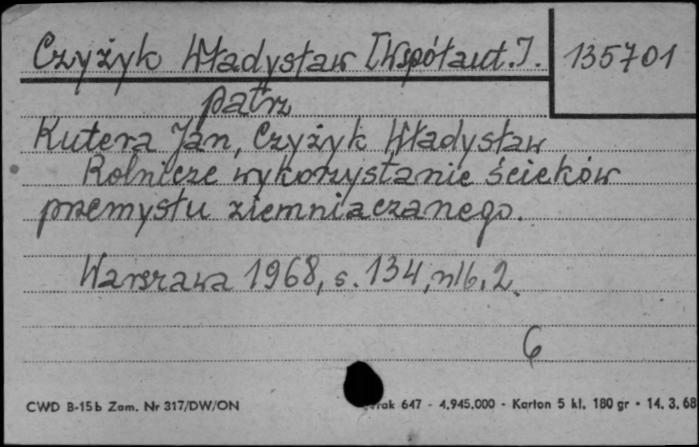 Czyżyk Władysław [Współaut.]. 135701
patrz
Kutera Jan, Czyżyk Władysław
Rolnicze wykorzystanie ścieków
przemysłu ziemniaczanego.
Warszawa 1968, s. 134, nlb. 2.
6
CWD B-15b Zam. Nr 317/DW/ON 647 - 4.945.000 - Karton 5 kl. 180 gr - 14. 3. 68